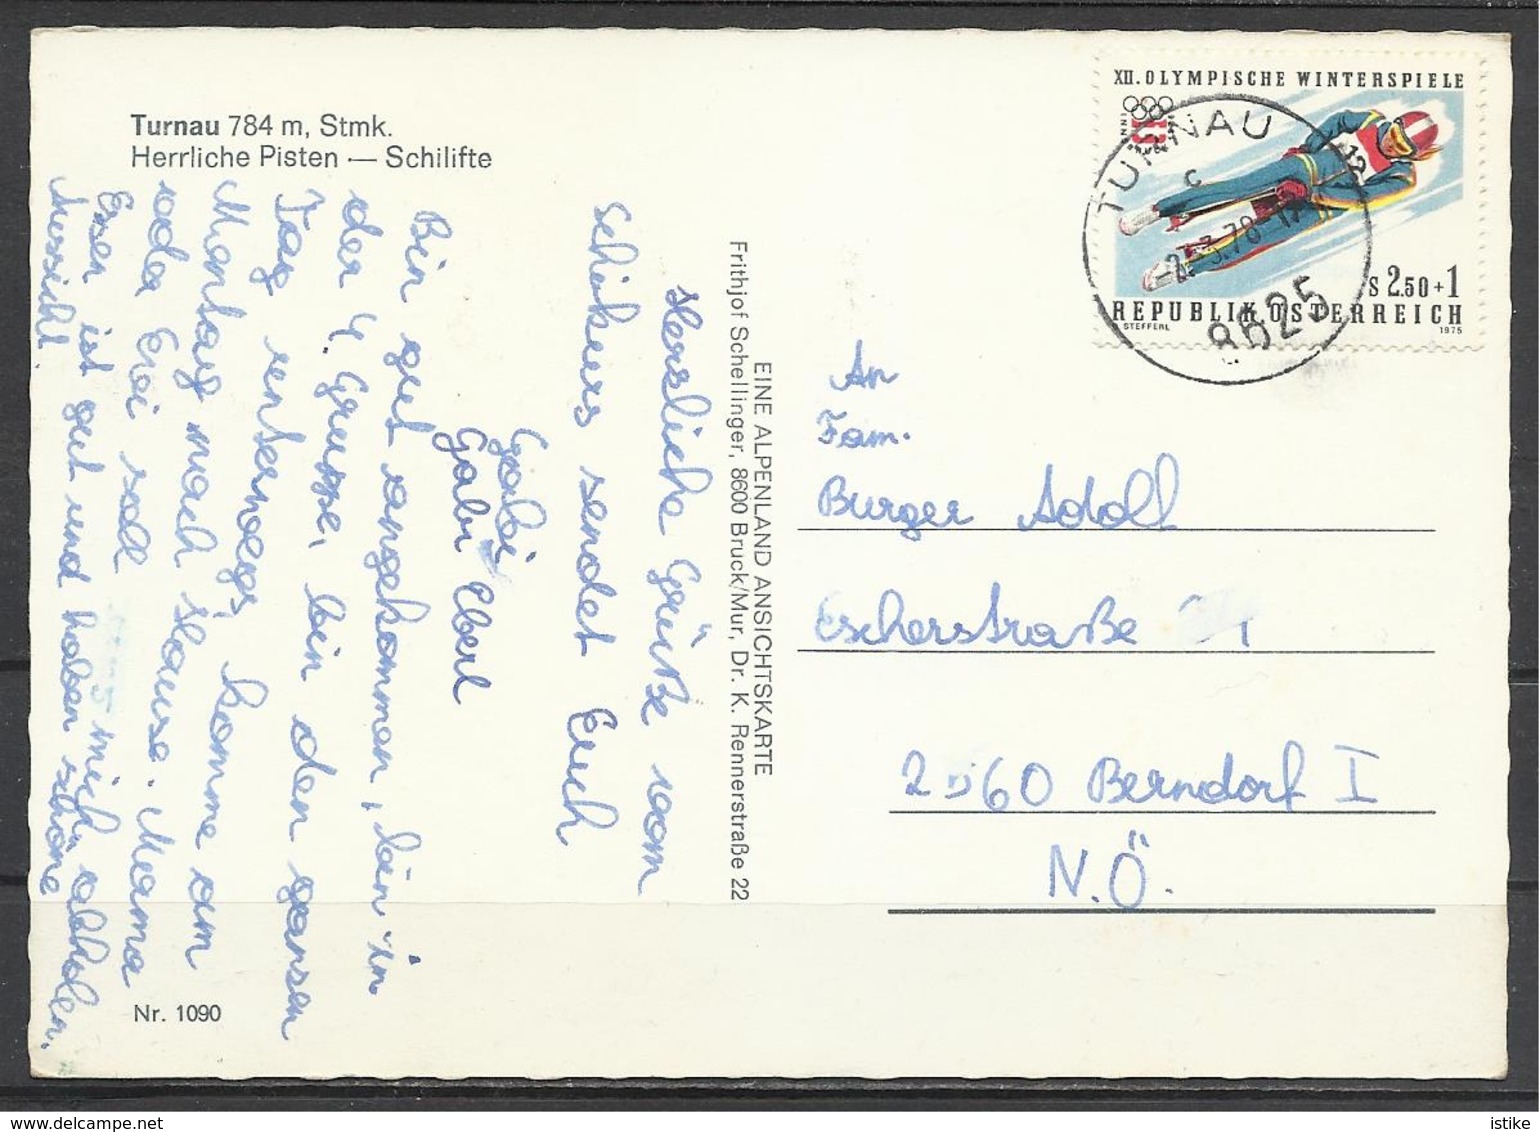 Turnau 784 m, Stmk.
Herrliche Pisten — Schilifte
Herzliche Grüße vom
Schikurs sendet Euch
Gabi
Gabi Eberl
Bin gut angekommen, bin in
der 4. Gruppe, bin den ganzen
Tag unterwegs, komme am
Montag nach Hause. Mama
oda Eroi soll mich abholen.
Essen ist gut und haben schöne
Aussicht.
Nr. 1090
EINE ALPENLAND ANSICHTSKARTE
Frithjof Schellinger, 8600 Bruck/Mur, Dr. K. Rennerstraße 22
XII. OLYMPISCHE WINTERSPIELE
S 2.50+1
REPUBLIK ÖSTERREICH
STEFFERL 1975
TURNAU
c
-2.-3.78-12
8625
An
Fam.
Burger Adolf
Escherstraße
2560 Berndorf I
N.Ö.
istike